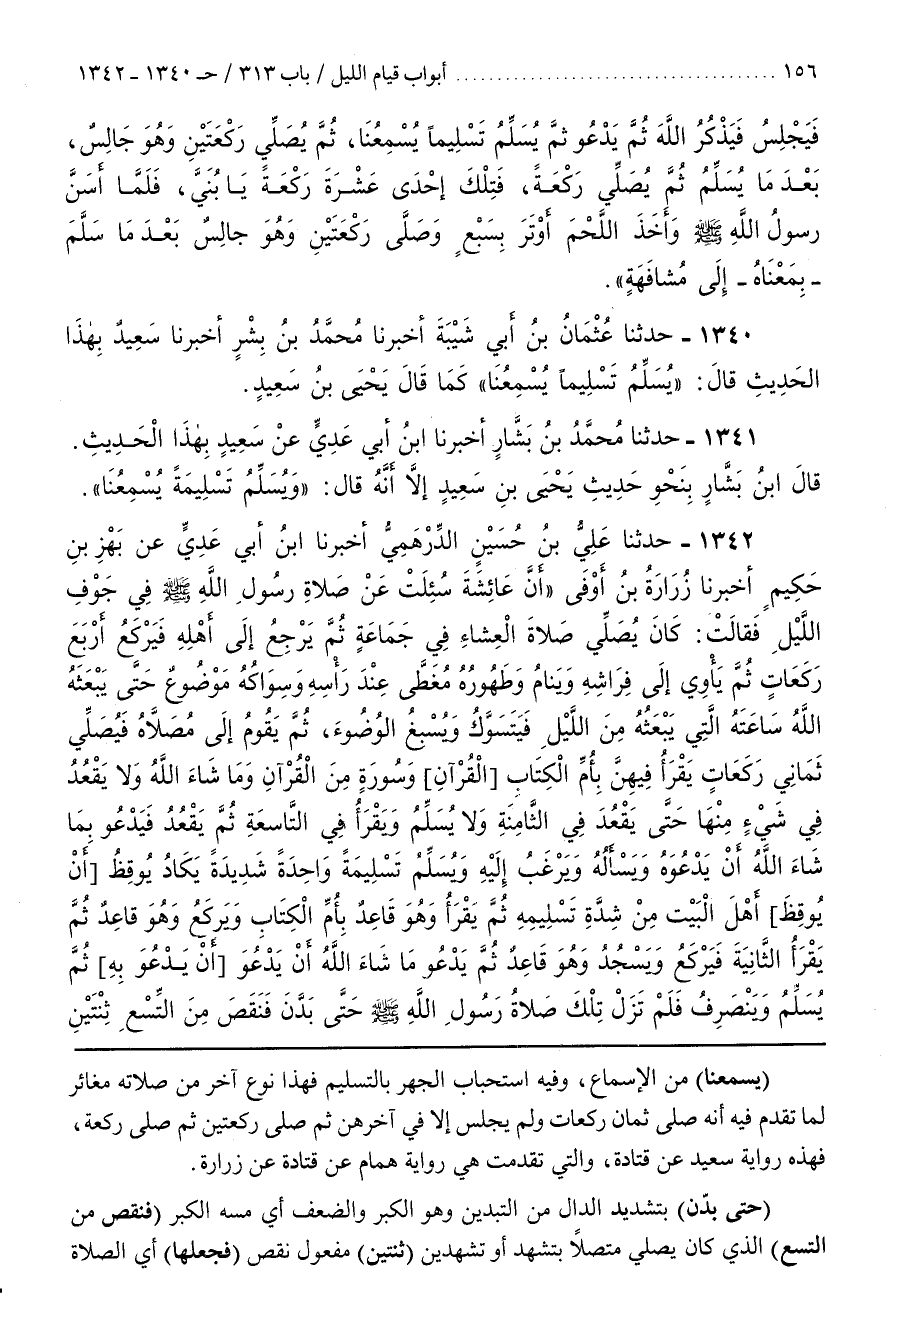 ١٥٦ ........................................ أبواب قيام الليل / باب ٣١٣ / حـ ١٣٤٠ - ١٣٤٢
فَيَجْلِسُ فَيَذْكُرُ اللَّهَ ثُمَّ يَدْعُو ثمَّ يُسَلِّمُ تَسْلِيماً يُسْمِعُنَا، ثُمَّ يُصَلِّي رَكْعَتَيْنِ وَهُوَ جَالِسٌ،
بَعْدَ مَا يُسَلِّمُ ثُمَّ يُصَلِّي رَكْعَةً، فَتِلْكَ إحْدَى عَشْرَةَ رَكْعَةً يَا بُنَيَّ، فَلَمَّا أَسَنَّ
رسولُ اللَّهِ ﷺ وَأَخَذَ اللَّحْمَ أَوْتَرَ بِسَبْعٍ وَصَلَّى رَكْعَتَيْنِ وَهُوَ جالِسٌ بَعْدَ مَا سَلَّمَ
ـ بِمَعْنَاهُ ـ إلَى مُشافَهَةٍ».
١٣٤٠ ـ حدثنا عُثْمَانُ بنُ أَبي شَيْبَةَ أخبرنا مُحمَّدُ بنُ بِشْرٍ أخبرنا سَعِيدٌ بِهٰذَا
الحَدِيثِ قالَ: «يُسَلِّمُ تَسْلِيماً يُسْمِعُنَا» كَمَا قَالَ يَحْيَى بنُ سَعِيدٍ.
١٣٤١ ـ حدثنا مُحمَّدُ بنُ بَشَّارٍ أخبرنا ابنُ أبي عَدِيٍّ عنْ سَعِيدٍ بِهٰذَا الْحَدِيثِ.
قالَ ابنُ بَشَّارٍ بِنَحْوِ حَدِيثِ يَحْيَى بنِ سَعِيدٍ إلاَّ أَنَّهُ قال: «وَيُسَلِّمُ تَسْلِيمَةً يُسْمِعُنَا».
١٣٤٢ ـ حدثنا عَلِيُّ بنُ حُسَيْنٍ الدِّرْهَمِيُّ أخبرنا ابنُ أبي عَدِيٍّ عن بَهْزِ بنِ
حَكِيمٍ أخبرنا زُرَارَةُ بنُ أَوْفَى «أَنَّ عَائِشَةَ سُئِلَتْ عَنْ صَلاَةِ رسُولِ اللَّهِ ﷺ فِي جَوْفِ
اللَّيْلِ فَقالَتْ: كَانَ يُصَلِّي صَلاَةَ الْعِشاءِ فِي جَمَاعَةٍ ثُمَّ يَرْجِعُ إلَى أَهْلِهِ فَيَرْكَعُ أَرْبَعَ
رَكَعَاتٍ ثُمَّ يَأْوِي إلَى فِرَاشِهِ وَيَنامُ وَطَهُورُهُ مُغَطًّى عِنْدَ رَأْسِهِ وَسِوَاكُهُ مَوْضُوعٌ حَتَّى يَبْعَثَهُ
اللَّهُ سَاعَتَهُ الَّتِي يَبْعَثُهُ مِنَ اللَّيْلِ فَيَتَسَوَّكُ وَيُسْبِغُ الوُضُوءَ، ثُمَّ يَقُومُ إلَى مُصَلاَّهُ فَيُصَلِّي
ثَمَانِي رَكَعَاتٍ يَقْرَأُ فِيهِنَّ بِأُمِّ الْكِتَابِ [الْقُرْآنِ] وَسُورَةٍ مِنَ الْقُرْآنِ وَمَا شَاءَ اللَّهُ وَلا يَقْعُدُ
فِي شَيْءٍ مِنْهَا حَتَّى يَقْعُدَ فِي الثَّامِنَةِ وَلا يُسَلِّمُ وَيَقْرَأُ فِي التَّاسعَةِ ثُمَّ يَقْعُدُ فَيَدْعُو بِمَا
شَاءَ اللَّهُ أَنْ يَدْعُوَهُ وَيَسْأَلُهُ وَيَرْغَبُ إلَيْهِ وَيُسَلِّمُ تَسْلِيمَةً وَاحِدَةً شَدِيدَةً يَكَادُ يُوقِظُ [أَنْ
يُوقِظَ] أَهْلَ الْبَيْتِ مِنْ شِدَّةِ تَسْلِيمِهِ ثُمَّ يَقْرَأُ وَهُوَ قَاعِدٌ بِأُمِّ الْكِتَابِ وَيَرْكَعُ وَهُوَ قاعِدٌ ثُمَّ
يَقْرَأُ الثَّانِيَةَ فَيَرْكَعُ وَيَسْجُدُ وَهُوَ قَاعِدٌ ثُمَّ يَدْعُو مَا شَاءَ اللَّهُ أَنْ يَدْعُوَ [أَنْ يَدْعُوَ بِهِ] ثُمَّ
يُسَلِّمُ وَيَنْصَرِفُ فَلَمْ تَزَلْ تِلْكَ صَلاةُ رَسُولِ اللَّهِ ﷺ حَتَّى بَدَّنَ فَنَقَصَ مِنَ التِّسْعِ ثِنْتَيْنِ
(يسمعنا) من الإسماع، وفيه استحباب الجهر بالتسليم فهذا نوع آخر من صلاته مغائر
لما تقدم فيه أنه صلى ثمان ركعات ولم يجلس إلا في آخرهن ثم صلى ركعتين ثم صلى ركعة،
فهذه رواية سعيد عن قتادة، والتي تقدمت هي رواية همام عن قتادة عن زرارة.
(حتى بدّن) بتشديد الدال من التبدين وهو الكبر والضعف أي مسه الكبر (فنقص من
التسع) الذي كان يصلي متصلاً بتشهد أو تشهدين (ثنتين) مفعول نقص (فجعلها) أي الصلاة